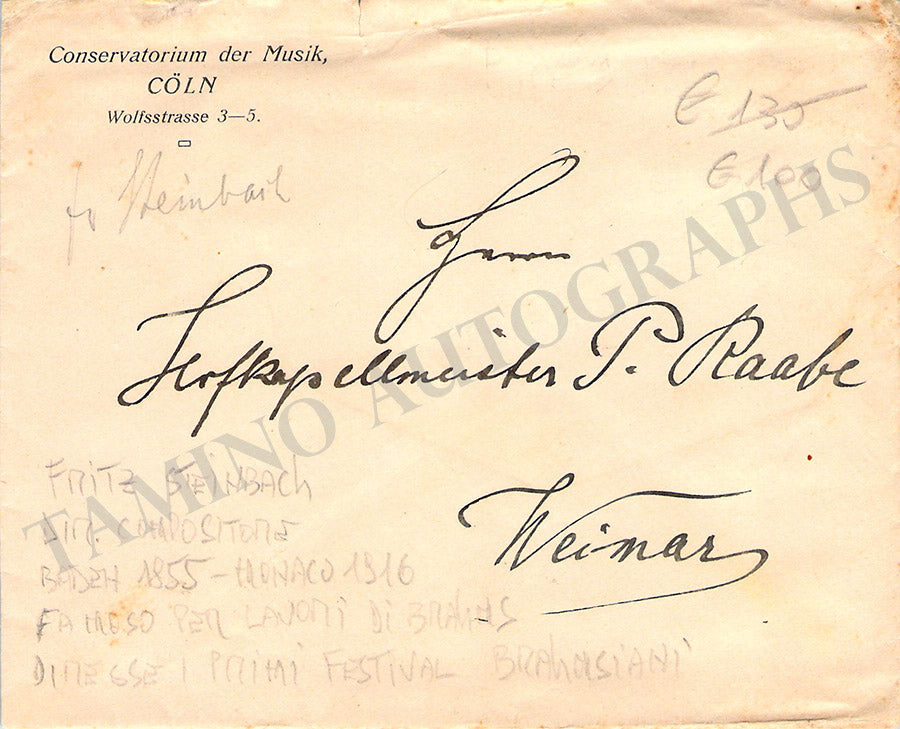 Conservatorium der Musik,
CÖLN
Wolfsstrasse 3—5.
€ 135
€ 100
fr Steinbach
Herrn
Hofkapellmeister P. Raabe
Weimar
TAMINO AUTOGRAPHS
FRITZ STEINBACH
DIR. COMPOSITORE
BADEN 1855 - MONACO 1916
FAMOSO PER LAVORI DI BRAHMS
DIRESSE I PRIMI FESTIVAL BRAHMSIANI